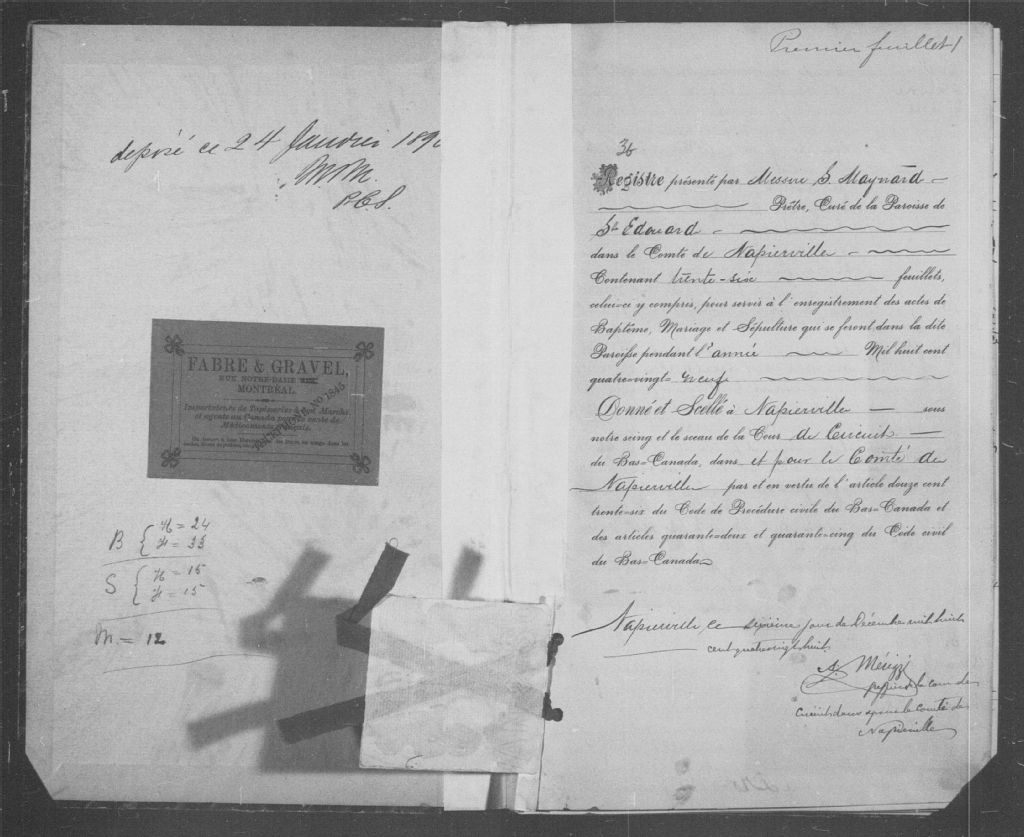 déposé ce 24 Janvier 1890
P.C.S.
FABRE & GRAVEL,
RUE NOTRE-DAME
MONTRÉAL.
Importateurs de Tapisseries à bon Marché
et agents au Canada pour la vente de
Médicaments français.
TELEPHONE NO 1845
B { H = 24
F = 33
S { H = 15
F = 15
M. = 12
Premier feuillet /
36
Registre présenté par Messire S. Maynard
Prêtre, Curé de la Paroisse de
St Edouard
dans le Comté de Napierville
Contenant trente-six feuillets,
celui-ci y compris, pour servir à l'enregistrement des actes de
Baptême, Mariage et Sépulture qui se feront dans la dite
Paroisse pendant l'année Mil huit cent
quatre-vingt-neuf
Donné et Scellé à Napierville sous
notre seing et le sceau de la Cour de Circuit
du Bas-Canada, dans et pour le Comté de
Napierville par et en vertu de l'article douze cent
trente-six du Code de Procédure civile du Bas-Canada et
des articles quarante-deux et quarante-cinq du Code civil
du Bas-Canada
Napierville ce sixième jour de Décembre mil huit
cent quatre vingt huit
la cour de
Circuit dans et pour le comté de
Napierville